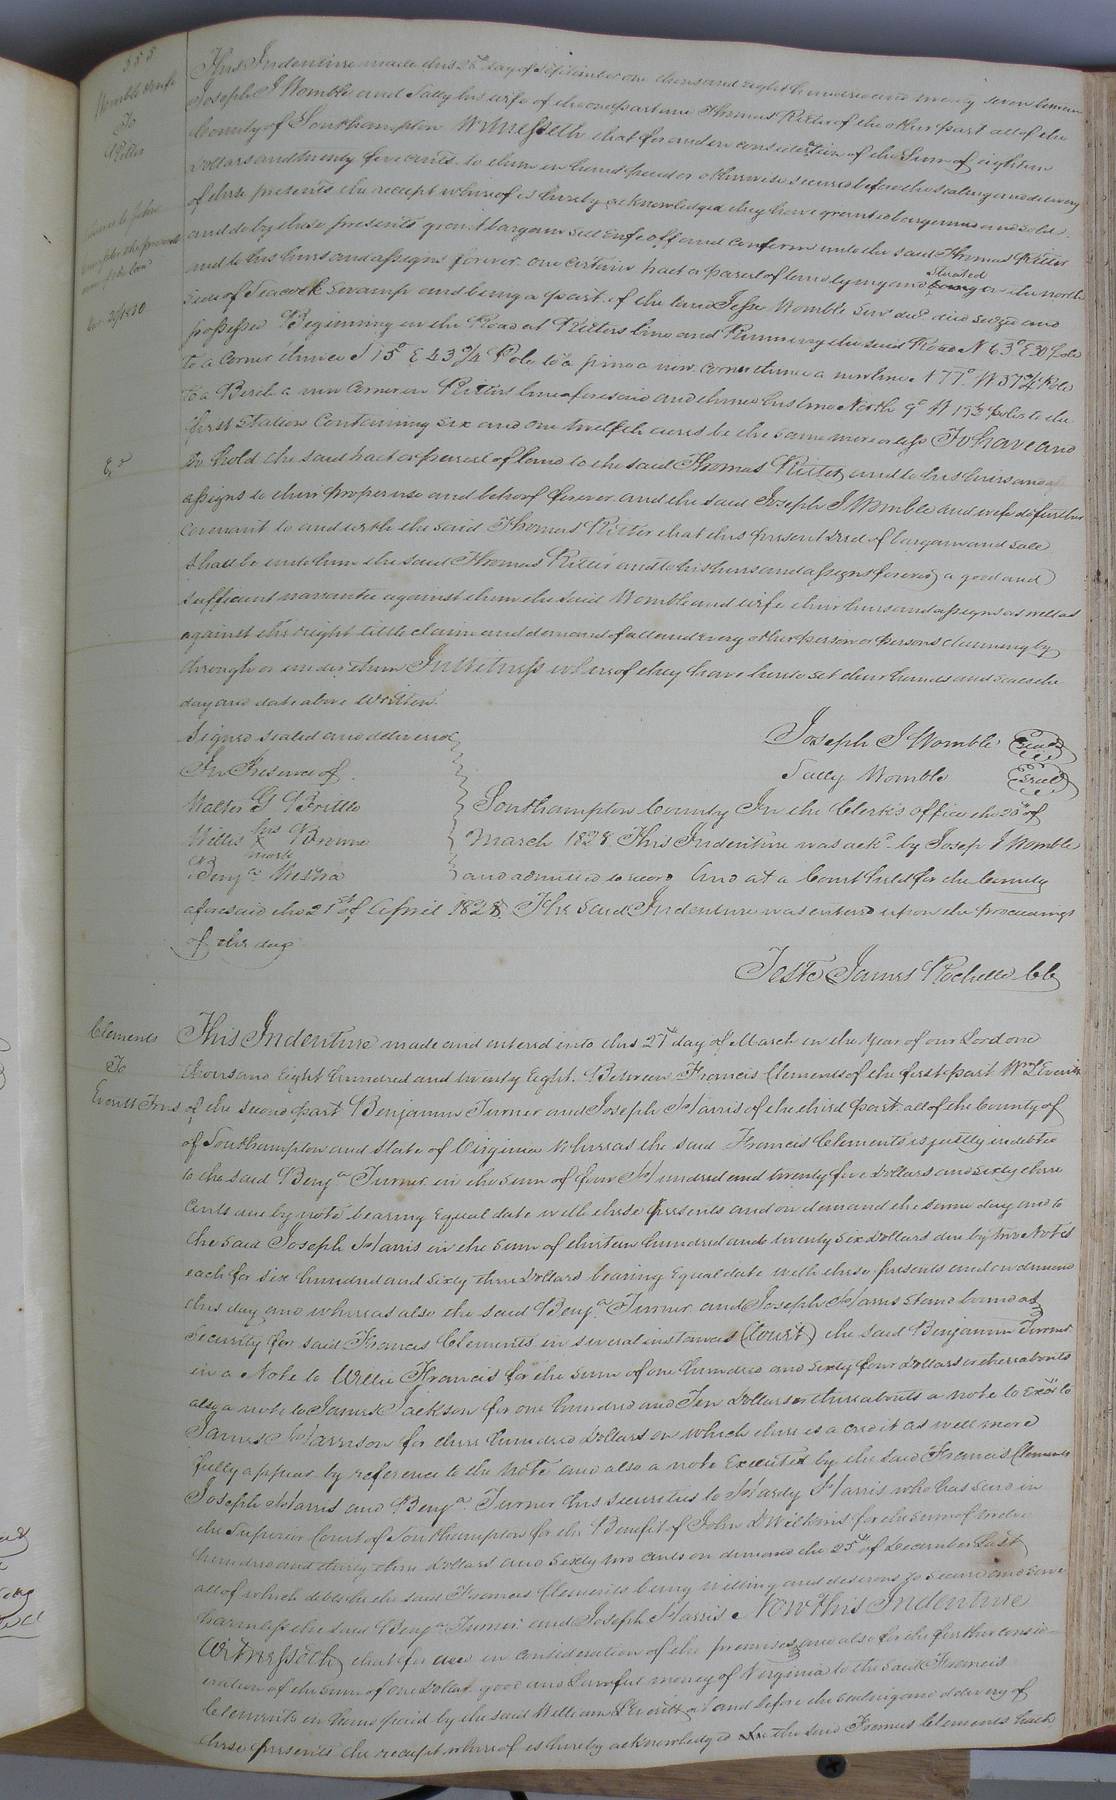 555
Womble & wife
To
Ritter
This Indenture made this 26th day of September one thousand eight hundred and twenty seven between
Joseph J Womble and Sally his wife of the one part and Thomas Ritter of the other part all of the
County of Southampton Witnesseth that for and in consideration of the Sum of eighteen
Dollars and twenty five cents to them in hand paid or otherwise secured before the sealing and delivery
of these presents the receipt whereof is hereby acknowledged they have granted bargained and sold
and do by these presents grant bargain sell Enfeoff and Confirm unto the said Thomas Ritter
and to his heirs and assigns forever one certain tract or parcel of land lying and situated on the north
side of Seacock Swamp and being a part of the land Jesse Womble Senr decd died seized and
possessed Beginning in the Road at Ritters line and Running the said Road N 63° E 30 Pole
to a corner thence S 15° E 43 3/4 Pole to a pine a new corner thence a new line N 77° W 37 1/2 Pole
to a Birch a new corner in Ritters line aforesaid and thence his line North 9° W 19 3/5 poles to the
first Station Containing six and one twelfth acres be the same more or less To have and
Ex
to hold the said tract or parcel of land to the said Thomas Ritter and to his heirs and
assigns to their proper use and behoof forever and the said Joseph J Womble and wife do further
covenant to and with the said Thomas Ritter that this present Deed of bargain and sale
shall be unto him the said Thomas Ritter and to his heirs and assigns forever a good and
sufficient warrantee against them the said Womble and wife their heirs and assigns as well as
against the right title claim and demand of all and every other person or persons claiming by
through or under them In Witness whereof they have hereto set their hands and seals the
day and date above Written
Signed sealed and delivered
In Presence of
Walter G Brittle
Willis his mark Browne
Benja
Joseph J Womble Seal
Sally Womble Seal
Southampton County In the Clerk's office the 20th of
March 1828 This Indenture was ackd by Josep J Womble
and admitted to record And at a Court held for the County
aforesaid the 21st of April 1828 The said Indenture was entered upon the proceedings
of the day
Teste James Rochelle CC
Clements
To
Everitt Trus
This Indenture made and entered into this 27th day of March in the year of our Lord one
thousand Eight hundred and twenty Eight. Between Francis Clements of the first part Wm L Everitt
of the second part Benjamin Turner and Joseph Harris of the third part all of the County of
of Southampton and State of Virginia Whereas the said Francis Clements is justly indebted
to the said Benja Turner in the sum of four Hundred and twenty five Dollars and sixty three
cents due by note bearing Equal date with these presents and on demand the same day and to
the said Joseph Harris in the sum of thirteen hundred and twenty six Dollars due by two Notes
each for six hundred and sixty three Dollars bearing Equal date with these presents and on demand
this day and whereas also the said Benja Turner and Joseph Harris stand bound as
Security for said Francis Clements in several instances (towit) the said Benjamin Turner
in a Note to Willie Francis for the sum of one hundred and sixty four Dollars or thereabouts
also a note to James Jackson for one hundred and Ten Dollars or thereabouts a note to Exor to
James Harrison for three hundred Dollars on which there is a credit as will more
fully appear by reference to the note and also a note Executed by the said Francis Clements
Joseph Harris and Benja Turner his securities to Hardy Harris who has sued in
the Superior Court of Southampton for the Benefit of John D Wilkins for the sum of
hundred and thirty three Dollars and sixty two cents on demand the 25th of December last
all of which debts he the said Francis Clements being willing and desirous to secure and save
harmless the said Benja Turner and Joseph Harris Now this Indenture
Witnesseth that for and in consideration of the premises and also for the further consid-
eration of the sum of one Dollar good and Lawful money of Virginia to the said Francis
Clements in hand paid by the said William L Everitt at and before the sealing and delivery of
these presents the receipt whereof is hereby acknowledged the said Francis Clements hath